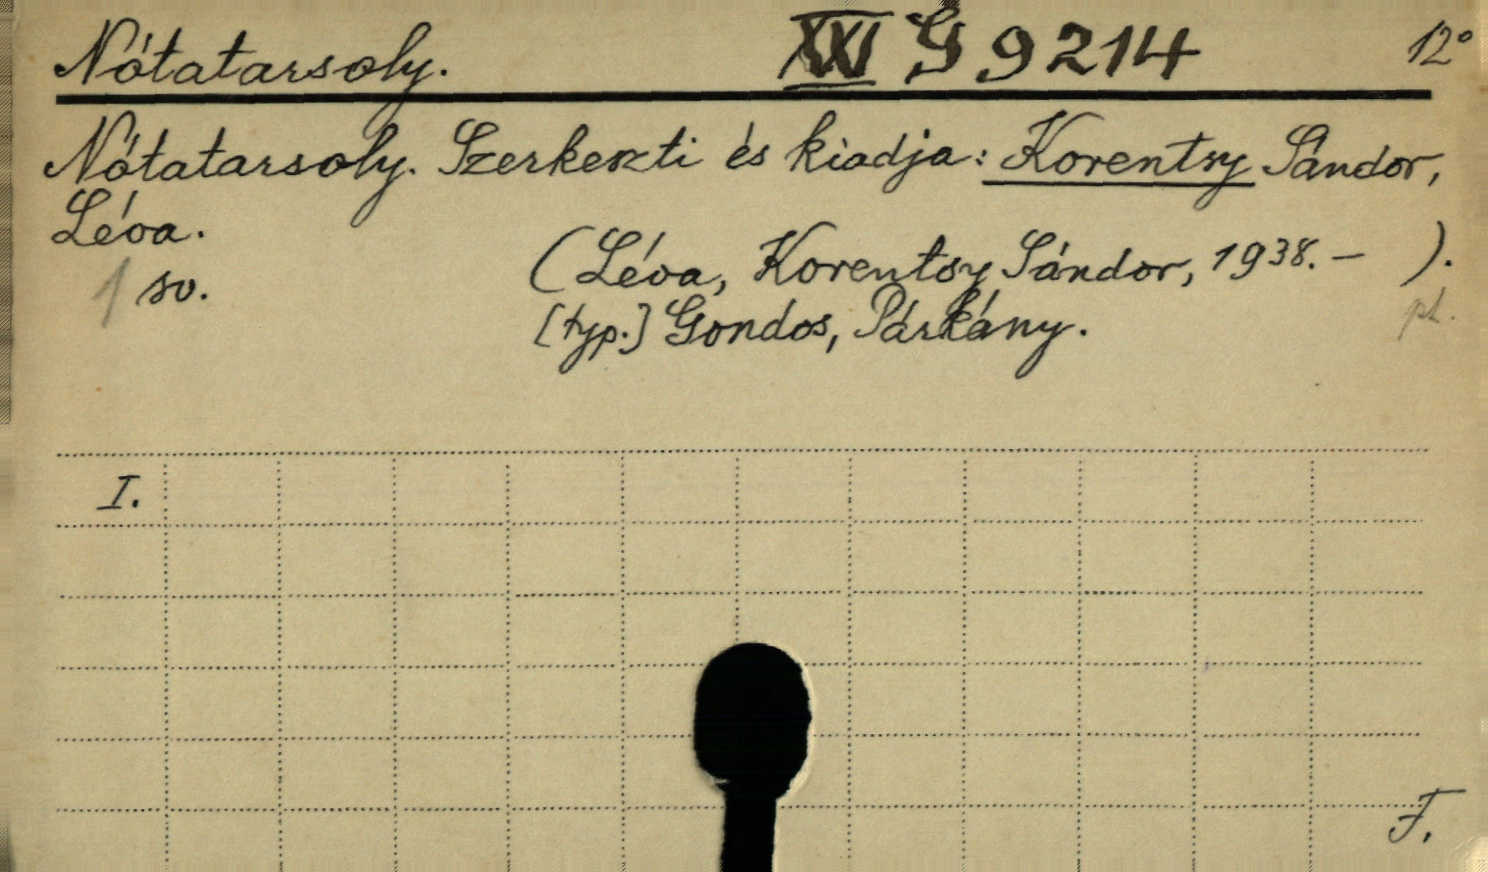 Nótatarsoly. XXI G 9214 12°
Nótatarsoly. Szerkeszti és kiadja: Korentsy Sándor,
Léva.
(Léva, Korentsy Sándor, 1938. – ).
1 sv.
[typ.] Gondos, Párkány.
I.
F.